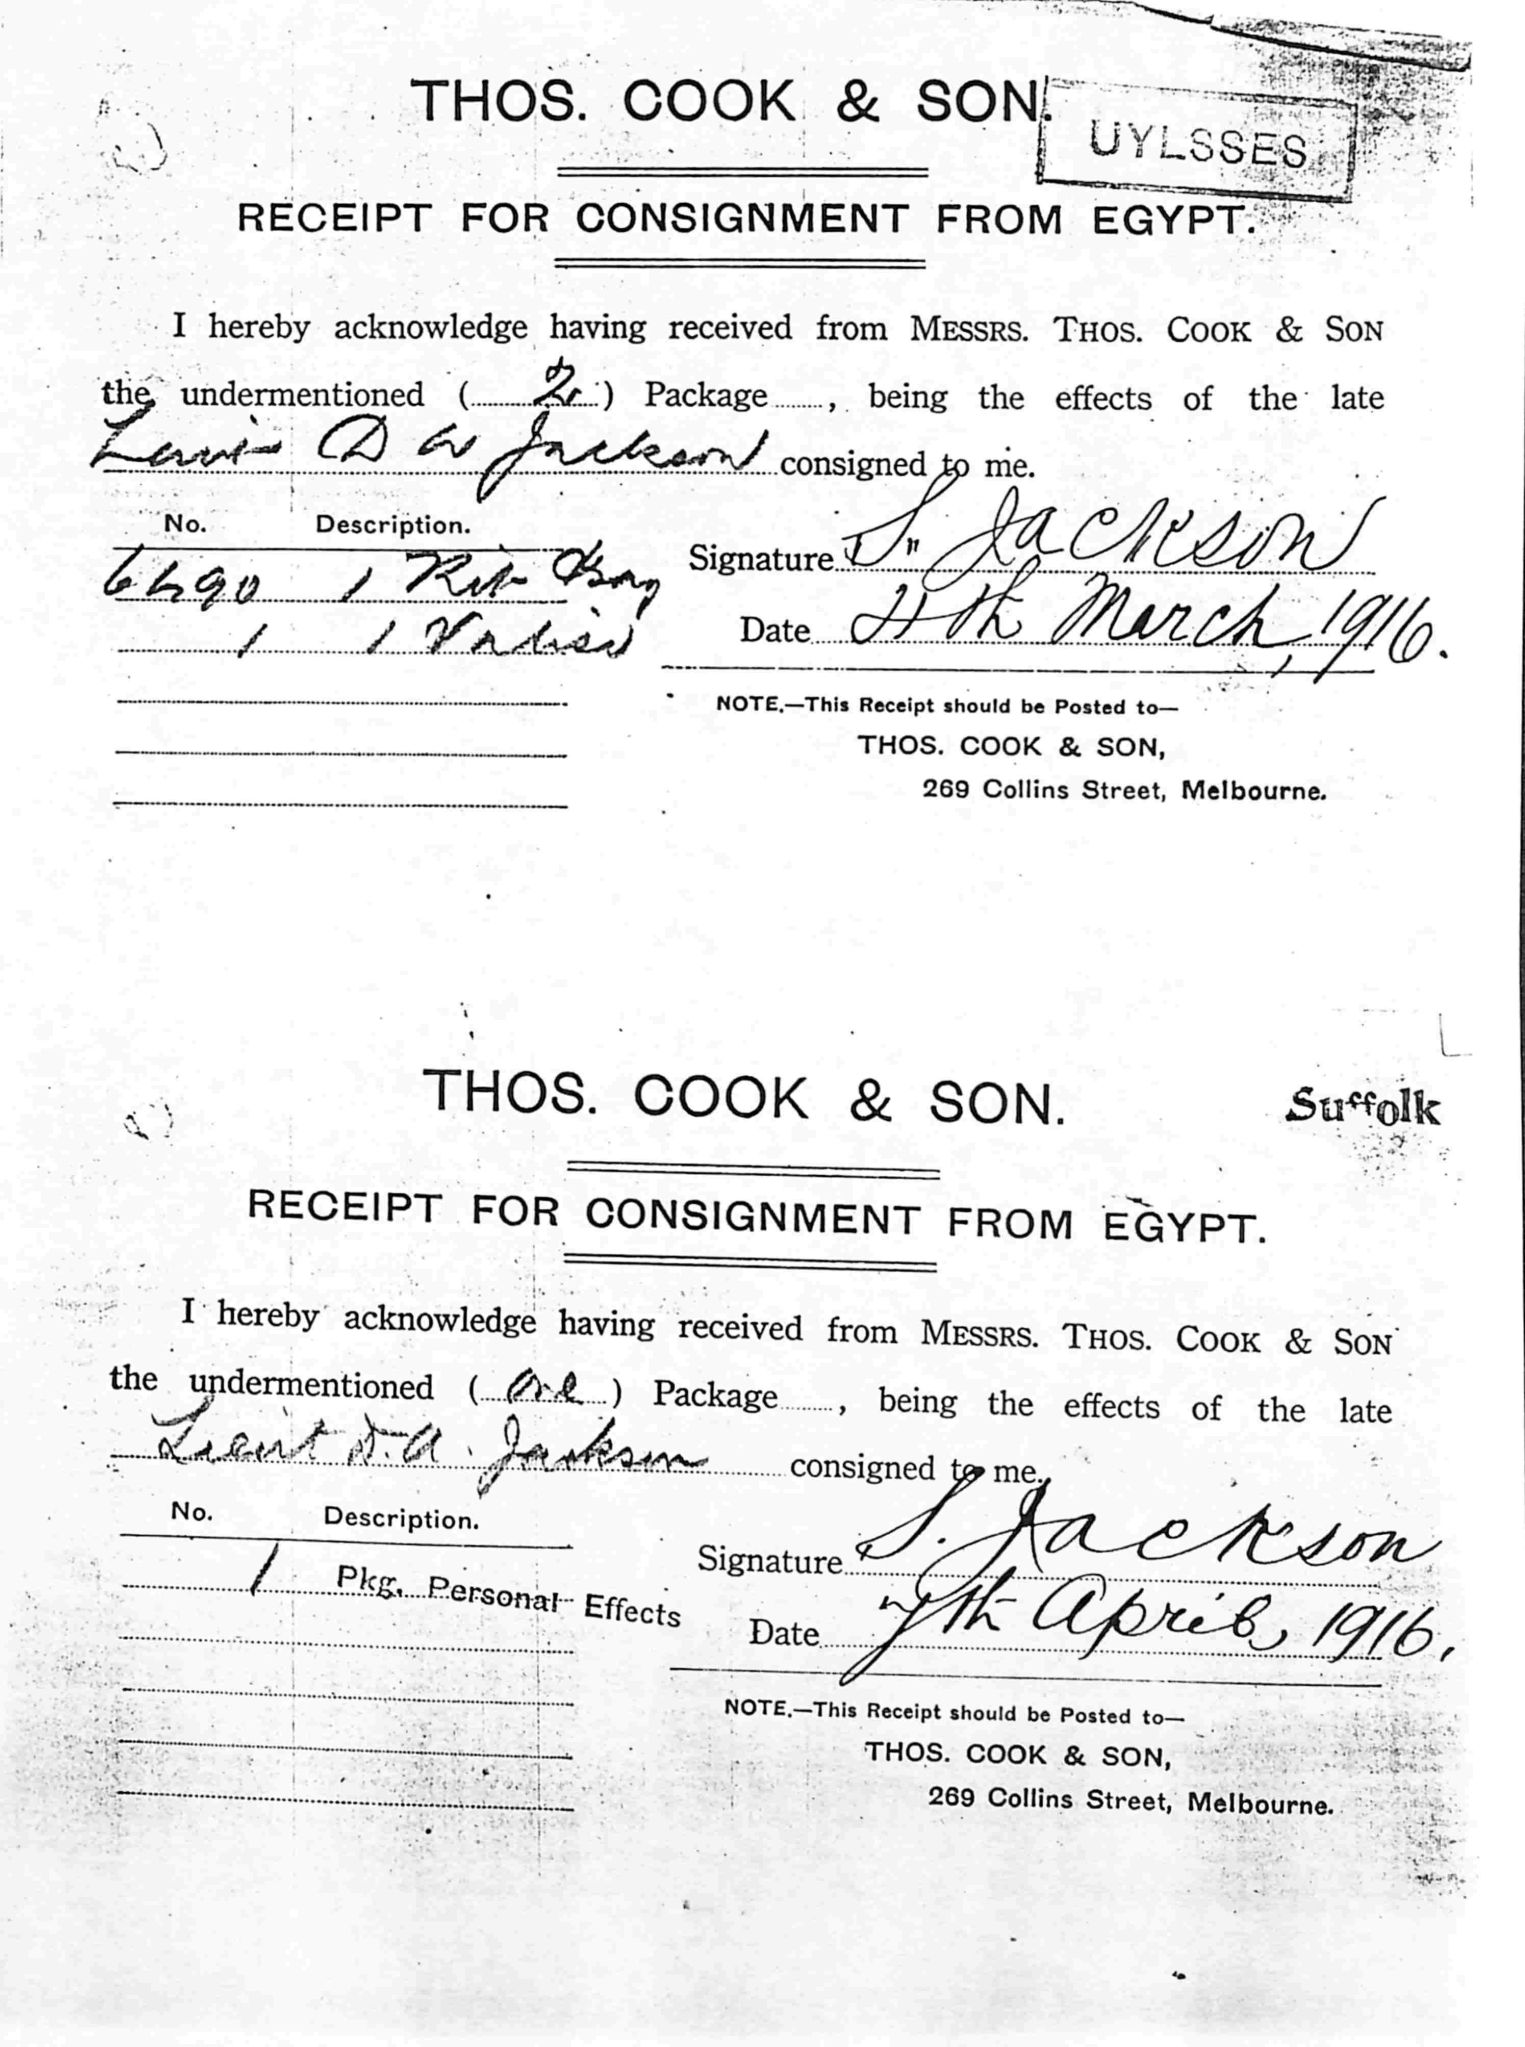 THOS. COOK & SON.
UYLSSES
RECEIPT FOR CONSIGNMENT FROM EGYPT.
I hereby acknowledge having received from MESSRS. THOS. COOK & SON
the undermentioned ( 2 ) Package , being the effects of the late
Jackson consigned to me.
No. Description. Signature S. Jackson
6490 1 Kit Bag
Date 4th March, 1916.
1 1 Valise
NOTE.—This Receipt should be Posted to—
THOS. COOK & SON,
269 Collins Street, Melbourne.
THOS. COOK & SON.
Suffolk
RECEIPT FOR CONSIGNMENT FROM EGYPT.
I hereby acknowledge having received from MESSRS. THOS. COOK & SON
the undermentioned ( one ) Package , being the effects of the late
Lieut D. A. Jackson consigned to me.
No. Description.
Signature S. Jackson
1 Pkg. Personal Effects
Date 7th April, 1916.
NOTE.—This Receipt should be Posted to—
THOS. COOK & SON,
269 Collins Street, Melbourne.